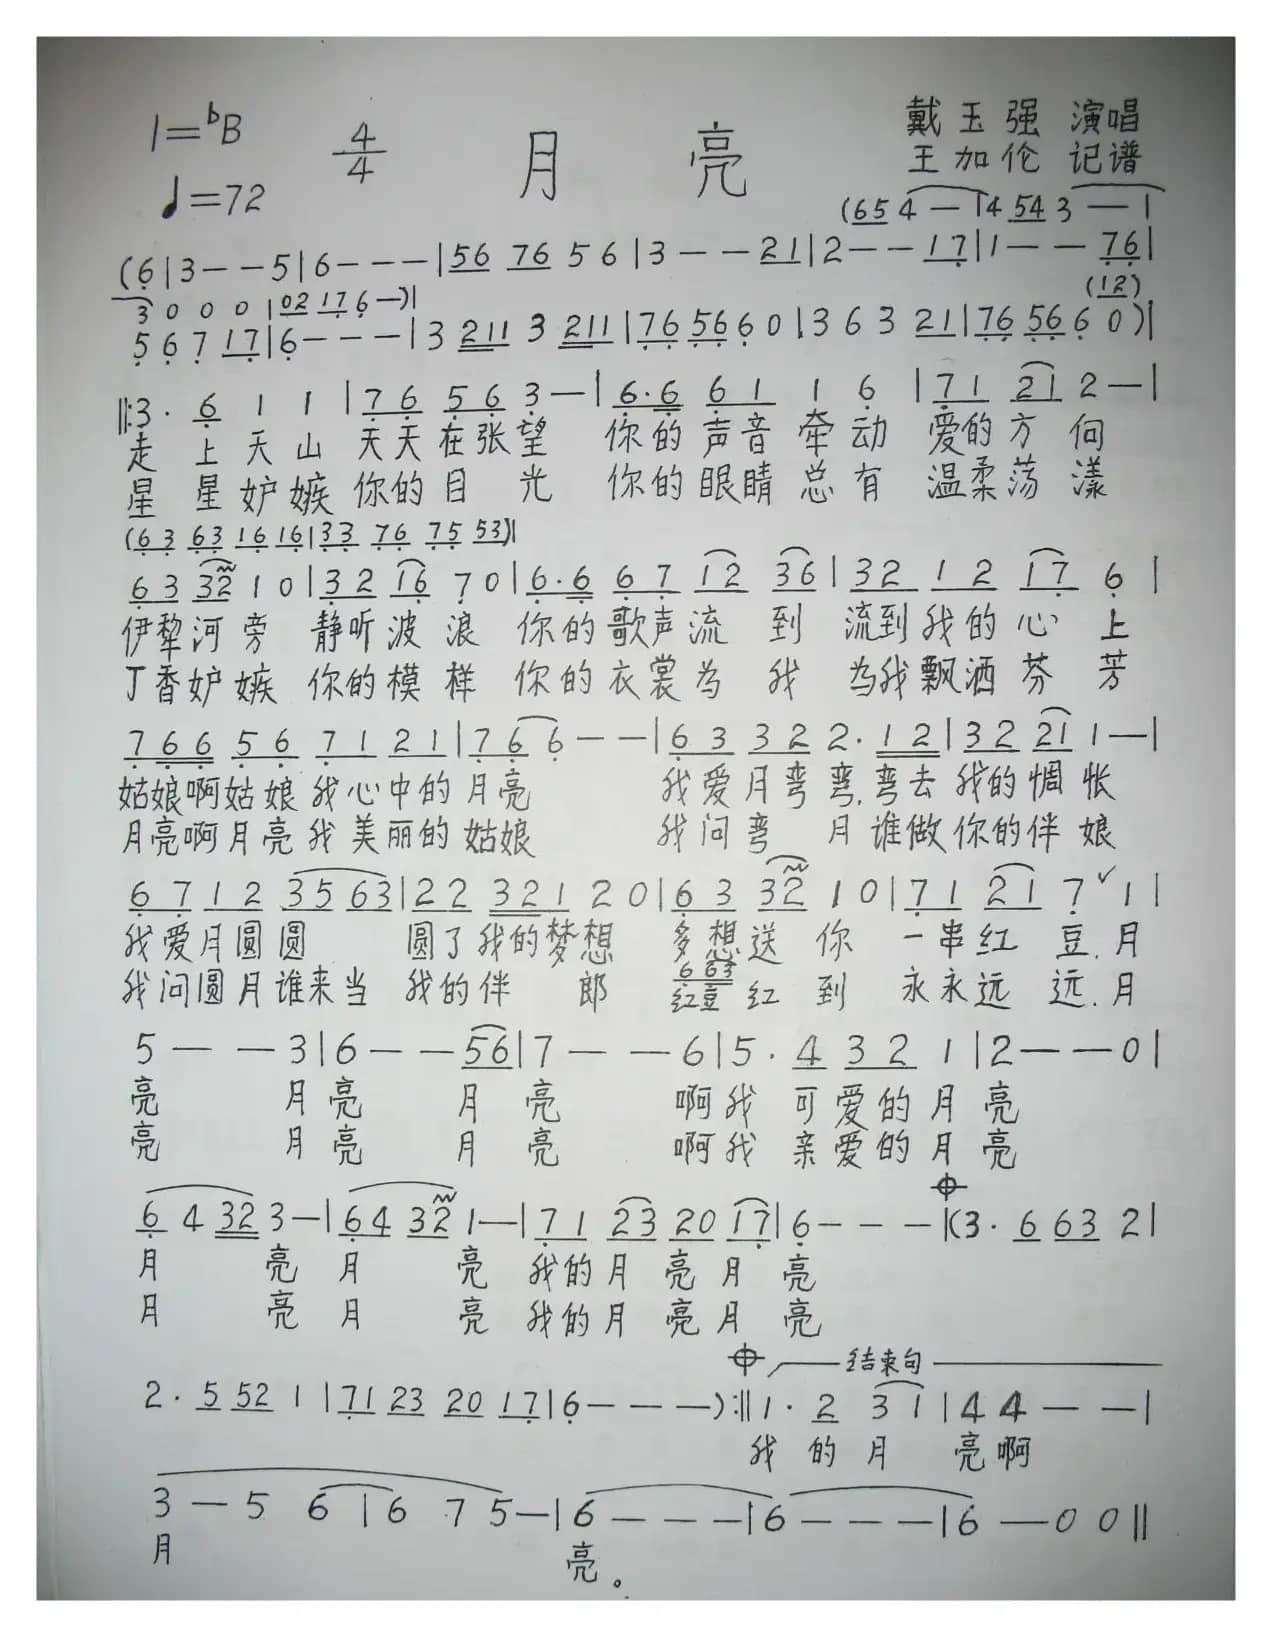 1=ᵇB 4/4 月 亮 戴玉强 演唱
♩=72 王加伦 记谱
(654—|4 543——|
(6|3——5|6———|56 76 5 6|3——21|2——17|1——76|
3 0 0 0|02 176—)| (12)
5 6 7 17|6———|3 211 3 211|76 566 0|3 6 3 21|76 566 0)|
‖:3· 6 1 1|76 56 3—|6·6 61 1 6|71 21 2—|
走上天山 天天在张望 你的声音牵动 爱的方向
星星妒嫉 你的目光 你的眼睛总有 温柔荡漾
(63 63 16 16|33 76 75 53)|
63 32 1 0|32 16 7 0|6·6 67 12 36|32 12 17 6|
伊犁河旁 静听波浪 你的歌声流到 流到我的心上
丁香妒嫉 你的模样 你的衣裳为我 为我飘洒芬芳
766 56 71 21|76 6——|63 32 2·12|32 21 1—|
姑娘啊姑娘我心中的月亮 我爱月弯弯,弯去我的惆怅
月亮啊月亮我美丽的姑娘 我问弯月谁做你的伴娘
67 12 35 63|22 321 2 0|63 32 1 0|71 21 7 ✓ 1|
我爱月圆圆 圆了我的梦想 多想送你 一串红豆.月
6 63
我问圆月谁来当 我的伴郎 红豆红到 永永远远.月
5——3|6——56|7——6|5·4 32 1|2——0|
亮 月亮 月亮 啊我可爱的月亮
亮 月亮 月亮 啊我亲爱的月亮
6 4 32 3—|64 32 1—|71 23 20 17|6———|(3· 6 63 2|
月 亮 月 亮 我的月亮月亮
月 亮 月 亮 我的月亮月亮
结束句
2· 5 52 1|71 23 20 17|6———):‖1· 2 3 1|4 4——|
我的月亮啊
3—5 6|6 7 5—|6———|6———|6—0 0‖
月 亮。